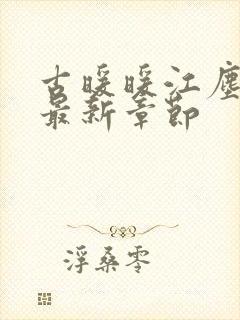 古暖暖江塵
最新章節
浮桑零